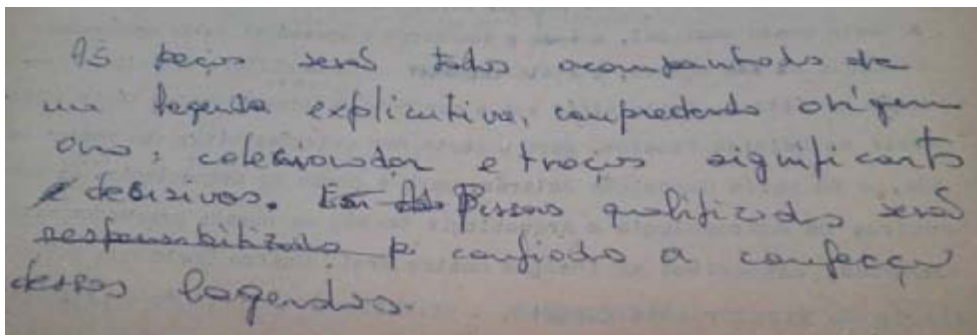 As peças serão todas acompanhadas de
uma legenda explicativa, compreendendo origem
ano, colecionador e traços significants
e decisivos. Pessoas qualificadas serão
responsabilizadas p. confiada a confecção
destas legendas.